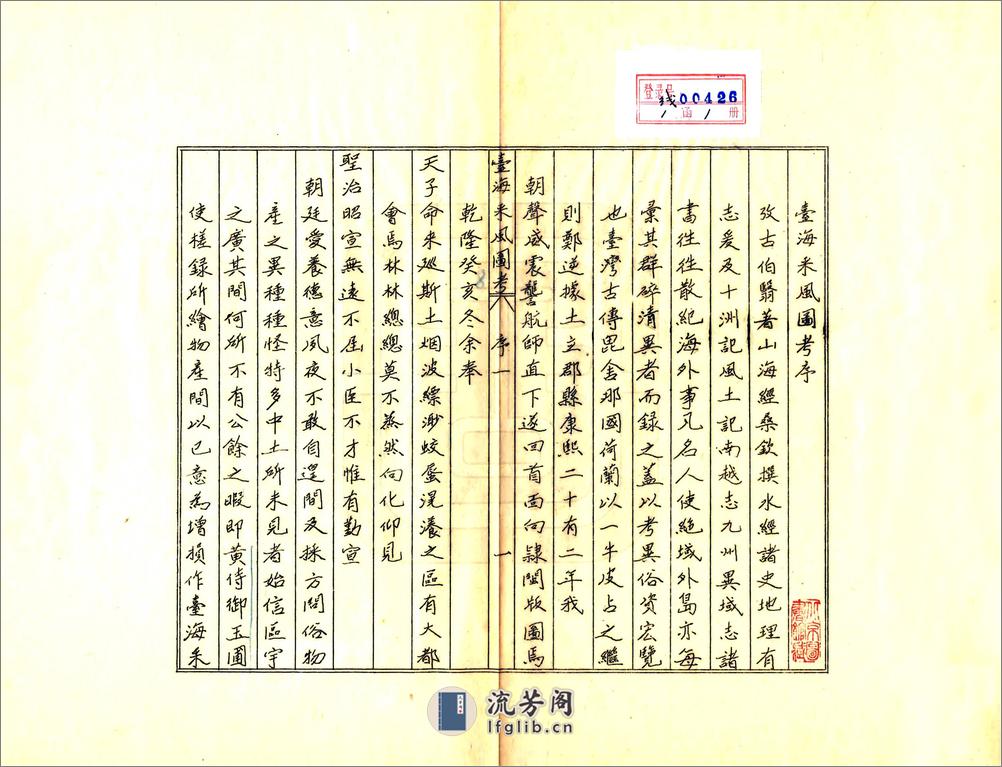 臺海采风圖考序
攷古伯翳著山海經桑欽撰水經諸史地理有
志爰及十洲記風土記南越志九州異域志諸
書往往散紀海外事凡名人使絕域外島亦每
彚其群碎清異者而録之盖以考異俗資宏覽
也臺灣古傳毘舍那國荷蘭以一牛皮占之繼
則鄭逆據土立郡縣康熙二十有二年我
朝聲威震讋航師直下遂回首面向隷閩版圖焉
臺海采风圖考 序一 一
乾隆癸亥冬余奉
天子命来廵斯土烟波縹渺蛟蜃滉瀁之區有大都
會焉林林總總莫不蒸然向化仰見
聖治昭宣無遠不屆小臣不才惟有勤宣
朝廷愛養德意夙夜不敢自遑間及採方問俗物
產之異種種怪特多中土所未見者始信區宇
之廣其間何所不有公餘之暇即黄侍御玉圃
使槎録所繪物産間以己意為增損作臺海采
登录号 线00426
1函1册
流芳阁
lfglib.cn